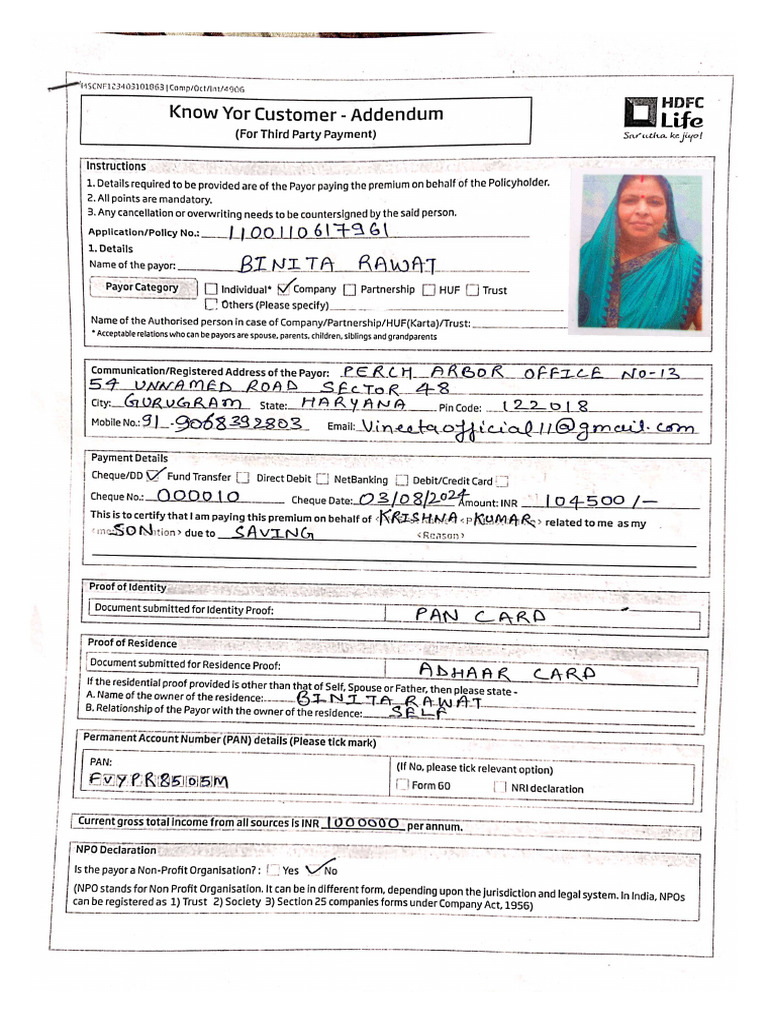 HSCNF123403101063 | Comp/Oct/Int/4906
Know Yor Customer - Addendum
(For Third Party Payment)
HDFC
Life
Sar utha ke jiyo!
Instructions
1. Details required to be provided are of the Payor paying the premium on behalf of the Policyholder.
2. All points are mandatory.
3. Any cancellation or overwriting needs to be countersigned by the said person.
Application/Policy No.: 1100110617961
1. Details
Name of the payor: BINITA RAWAT
Payor Category Individual* Company Partnership HUF Trust
Others (Please specify)
Name of the Authorised person in case of Company/Partnership/HUF(Karta)/Trust:
* Acceptable relations who can be payors are spouse, parents, children, siblings and grandparents
Communication/Registered Address of the Payor: PERCH ARBOR OFFICE NO-13
54 UNNAMED ROAD SECTOR 48
City: GURUGRAM State: HARYANA Pin Code: 122018
Mobile No.: 91-9068392803 Email: Vineetaofficial11@gmail.com
Payment Details
Cheque/DD Fund Transfer Direct Debit NetBanking Debit/Credit Card
Cheque No.: 000010 Cheque Date: 03/08/2024 Amount: INR 104500/-
This is to certify that I am paying this premium on behalf of KRISHNA KUMAR related to me as my
SON due to SAVING <Reason>
Proof of Identity
Document submitted for Identity Proof: PAN CARD
Proof of Residence
Document submitted for Residence Proof: ADHAAR CARD
If the residential proof provided is other than that of Self, Spouse or Father, then please state -
A. Name of the owner of the residence: BINITA RAWAT
B. Relationship of the Payor with the owner of the residence: SELF
Permanent Account Number (PAN) details (Please tick mark)
PAN: (If No, please tick relevant option)
FVYPR8505M Form 60 NRI declaration
Current gross total income from all sources is INR 1000000 per annum.
NPO Declaration
Is the payor a Non-Profit Organisation? : Yes No
(NPO stands for Non Profit Organisation. It can be in different form, depending upon the jurisdiction and legal system. In India, NPOs
can be registered as 1) Trust 2) Society 3) Section 25 companies forms under Company Act, 1956)